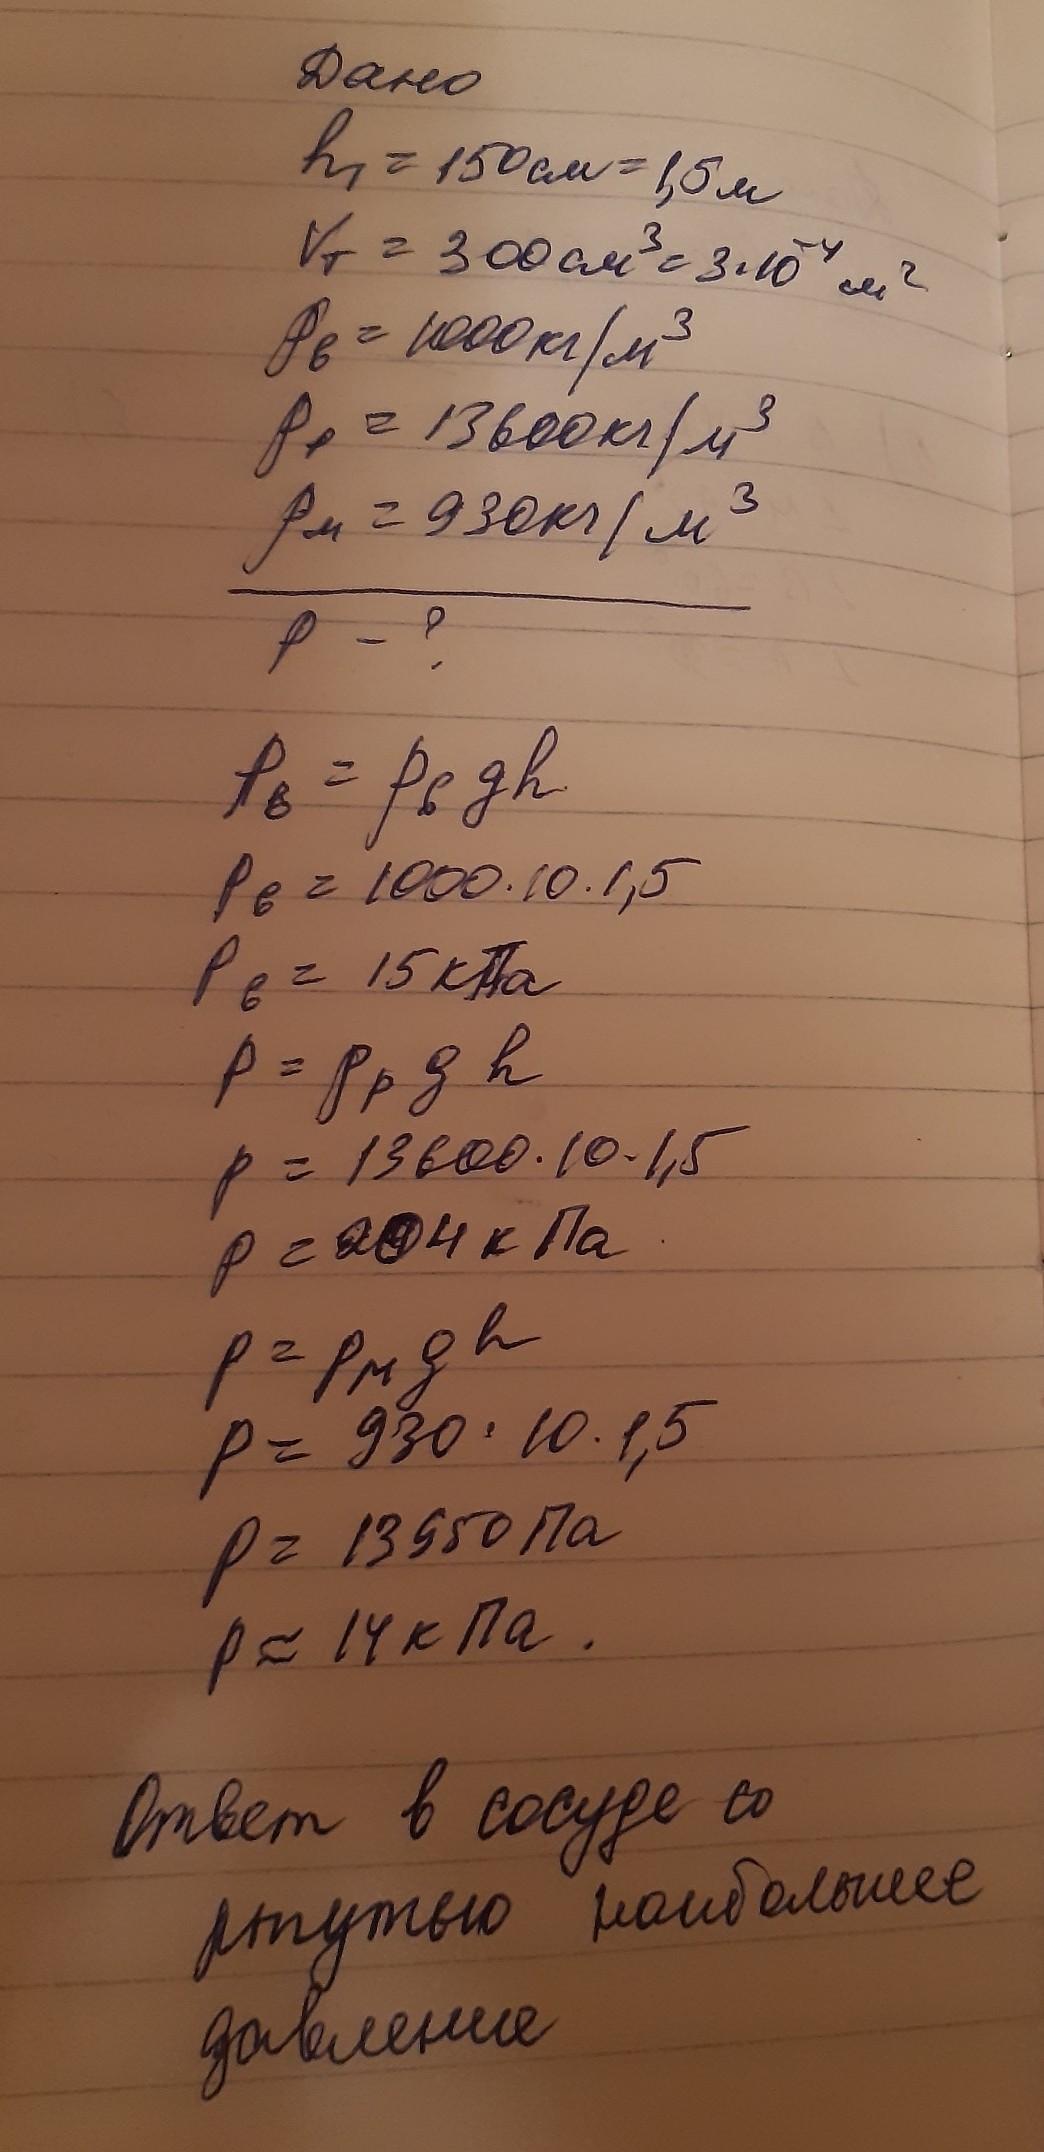 Дано
h₁ = 150см = 1,5м
Vт = 300см³ = 3·10⁻⁴ м²
ρв = 1000кг/м³
ρр = 13600кг/м³
ρм = 930кг/м³
p - ?
Pв = ρв gh
Pв = 1000·10·1,5
Pв = 15кПа
p = ρр g h
p = 13600·10·1,5
p = 204 кПа
p = ρм gh
p = 930·10·1,5
p = 13950Па
p ≈ 14кПа.
Ответ в сосуде со
ртутью наибольшее
давление